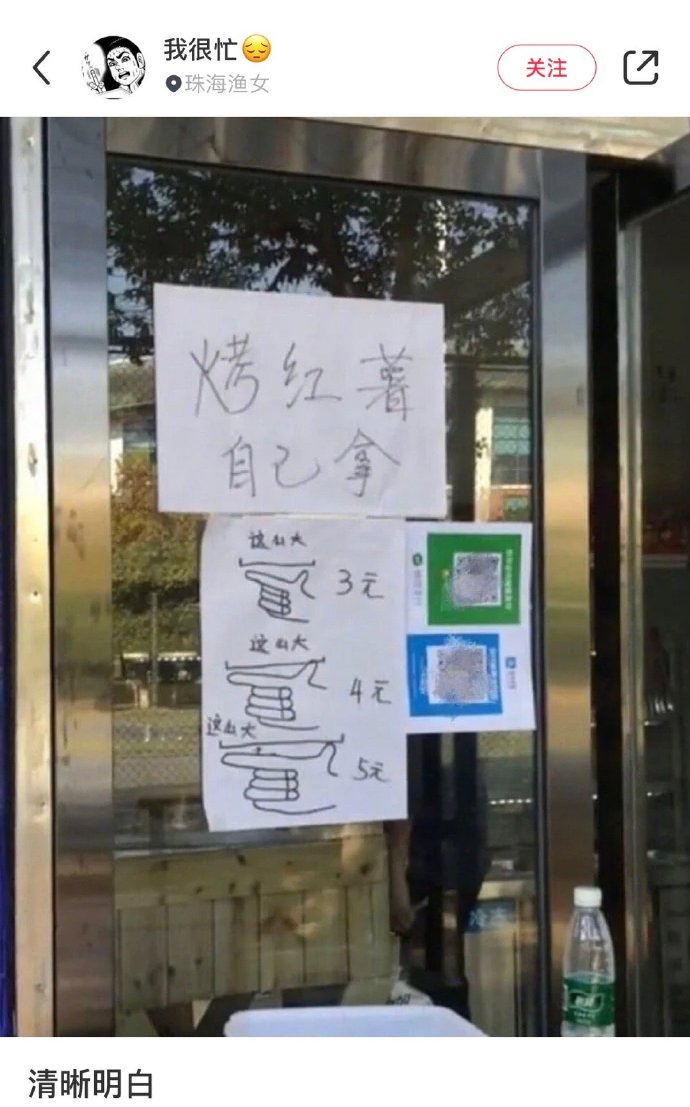 我很忙😔
珠海渔女
关注
烤红薯
自己拿
这么大
3元
这么大
4元
这么大
5元
清晰明白